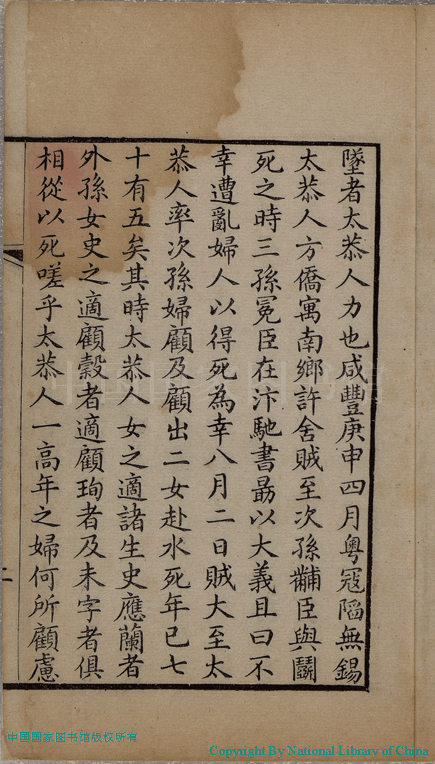 墜者太恭人力也咸豐庚申四月粵寇陷無錫
太恭人方僑寓南鄉許舍賊至次孫黼臣與鬭
死之時三孫冕臣在汴馳書勗以大義且曰不
幸遭亂婦人以得死為幸八月二日賊大至太
恭人率次孫婦顧及顧出二女赴水死年已七
十有五矣其時太恭人女之適諸生史應蘭者
外孫女史之適顧縠者適顧珣者及未字者俱
相從以死嗟乎太恭人一高年之婦何所顧慮
中国国家图书馆版权所有
Copyright By National Library of China